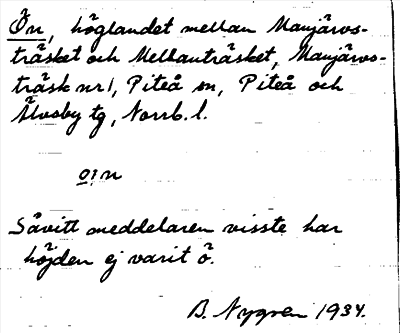 Ön, höglandet mellan Manjärvs-
träsket och Mellanträsket, Manjärvs-
träsk nr 1, Piteå sn, Piteå och
Älvsby tg, Norrb. l.
o:n
Såvitt meddelaren visste har
höjden ej varit ö.
B. Nygren 1934.